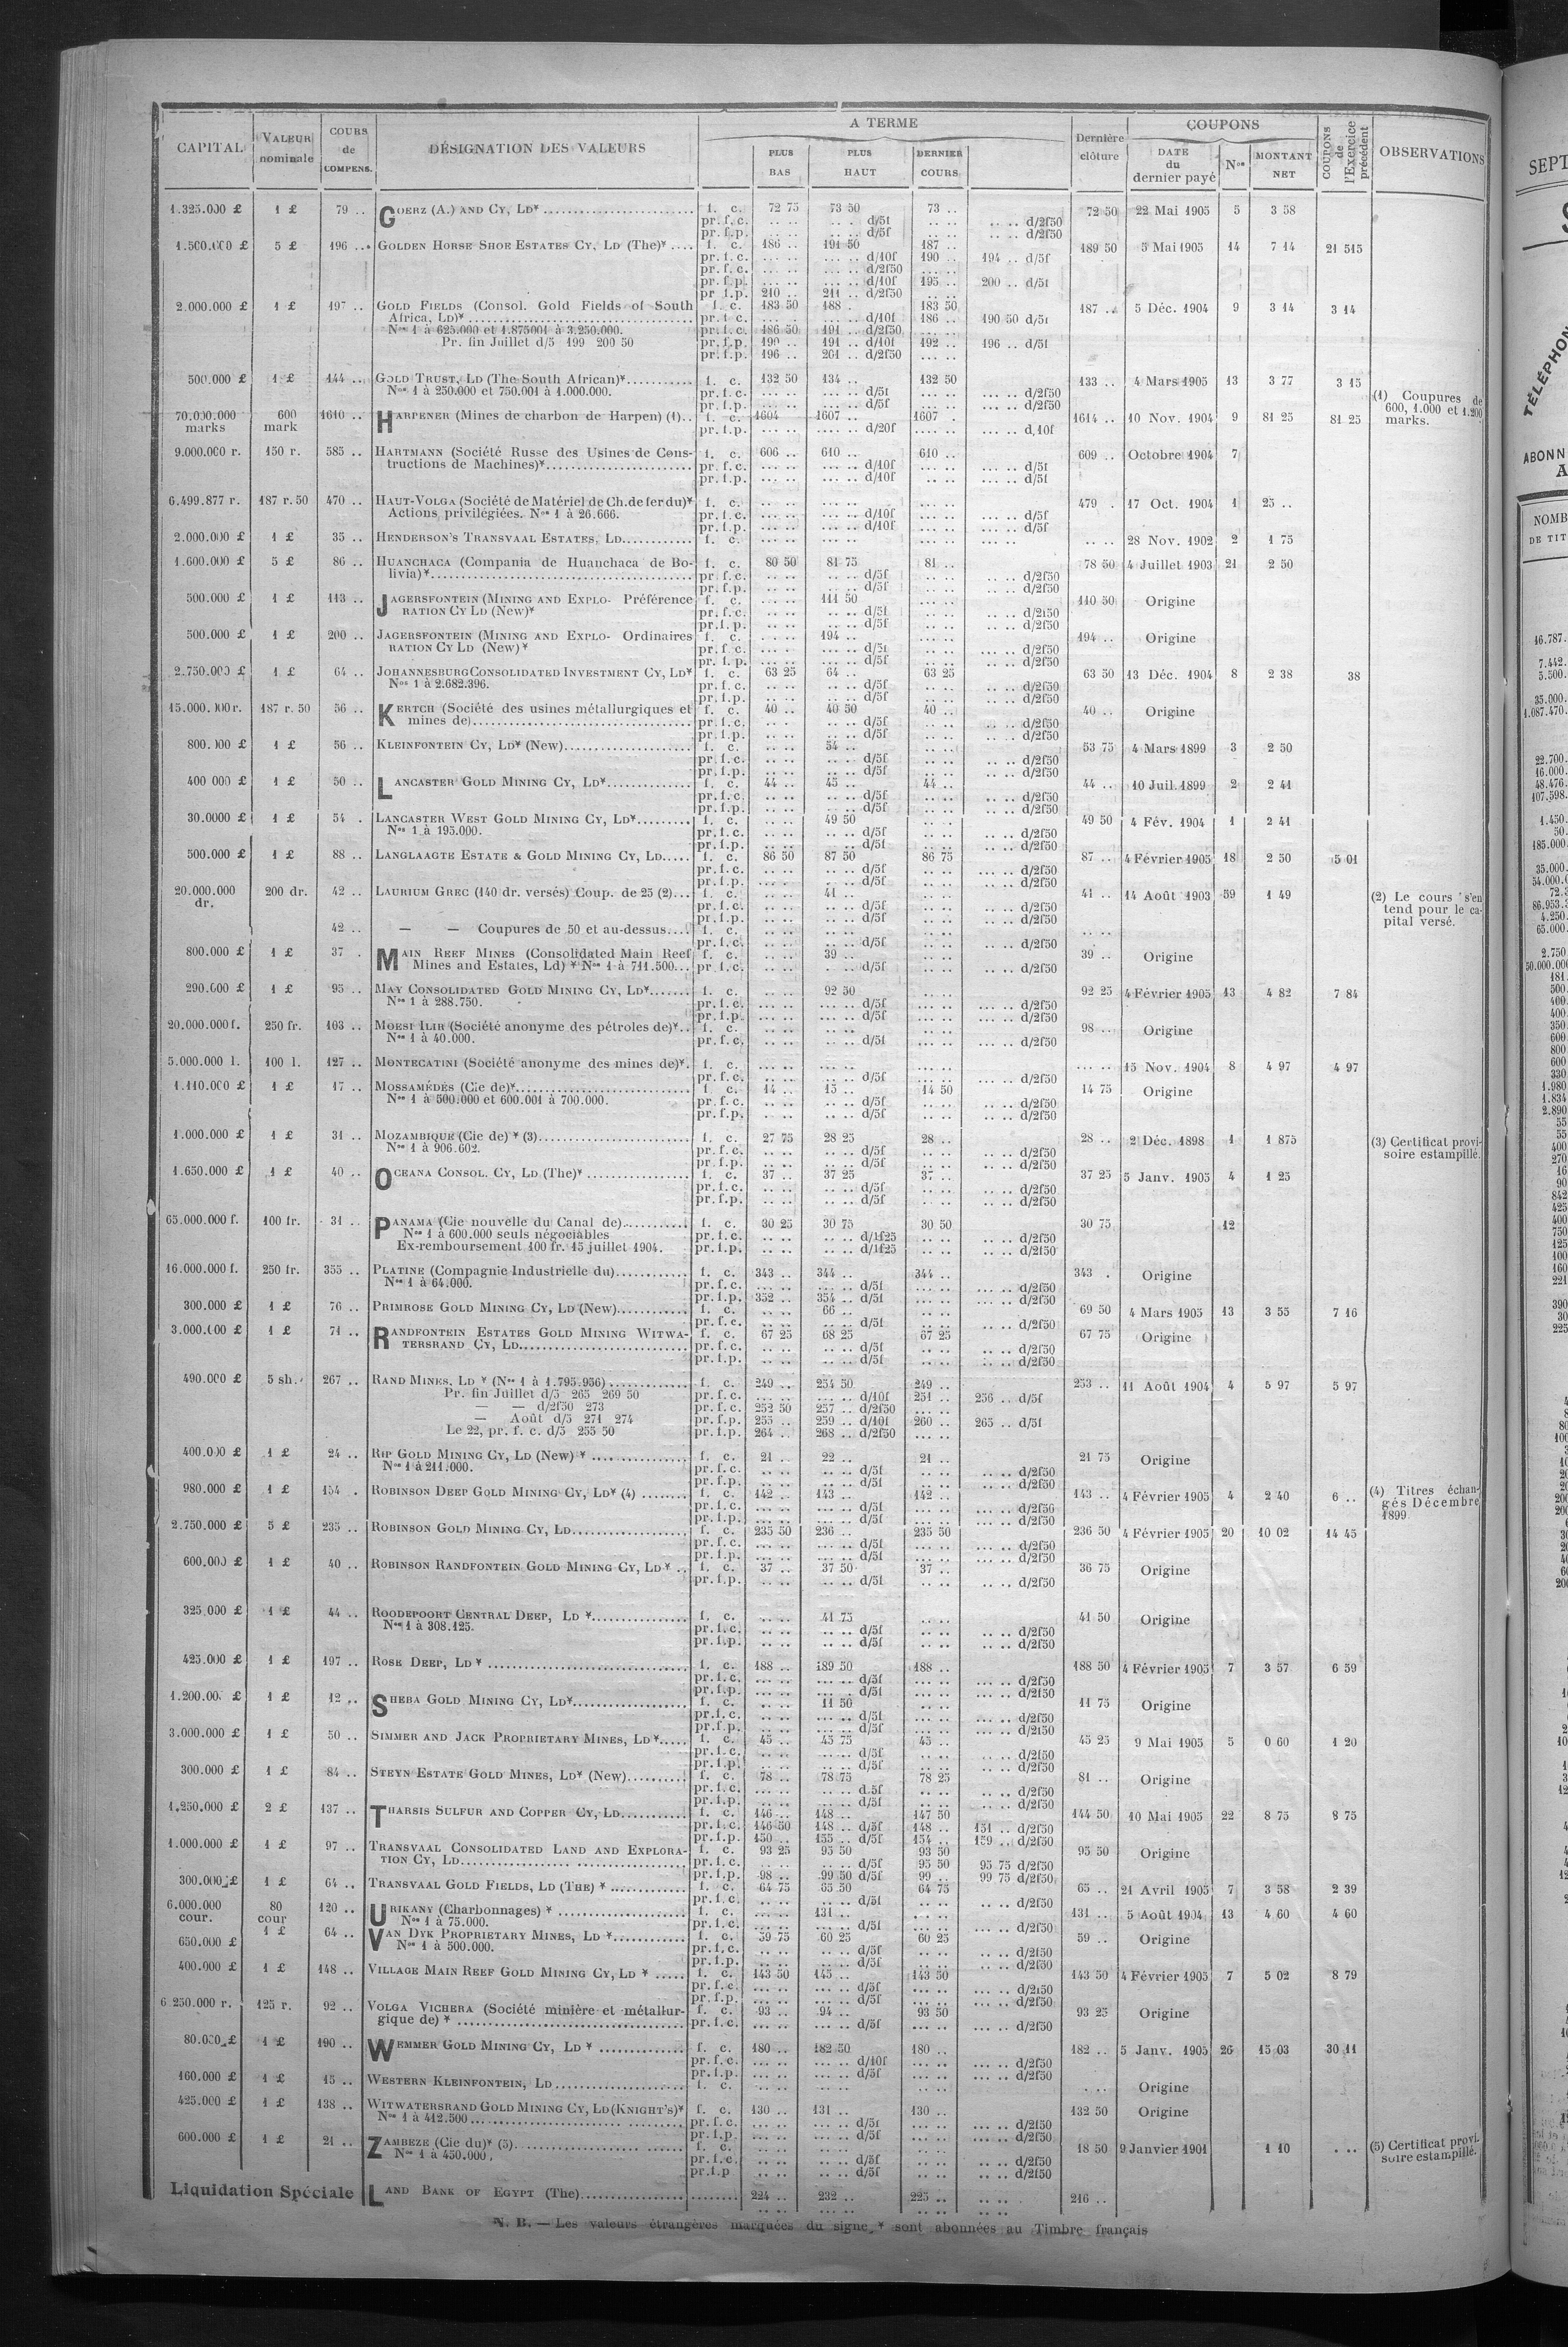 CAPITAL | VALEUR nominale | COURS de COMPENS. | DÉSIGNATION DES VALEURS | A TERME | PLUS BAS | PLUS HAUT | DERNIER COURS | Dernière clôture | COUPONS | DATE du dernier payé | Nos | MONTANT NET | COUPONS de l'Exercice précédent | OBSERVATIONS
1.325.000 £ | 1 £ | 79 .. | GOERZ (A.) AND CY, LD* | f. c. | 72 75 | 73 50 | 73 .. | 72 50 | 22 Mai 1905 | 5 | 3 58
pr. f. c. | .. .. | .. .. d/5f | .. .. | .. .. d/2f50
pr. f. p. | .. .. | .. .. d/5f | .. .. | .. .. d/2f50
5 £ | 196 .. | GOLDEN HORSE SHOE ESTATES CY, LD (The)* | f. c. | 186 .. | 191 50 | 187 .. | 189 50 | 5 Mai 1905 | 14 | 7 14 | 21 515
pr. f. c. | ... .. | ... .. d/10f | 190 .. | 194 .. d/5f
pr. f. c. | ... .. | ... .. d/2f50 | ... ..
pr. f. p. | ... .. | ... .. d/10f | 195 .. | 200 .. d/5f
pr. f. p. | 210 .. | 211 .. d/2f50
2.000.000 £ | 1 £ | 197 .. | GOLD FIELDS (Consol. Gold Fields of South | f. c. | 183 50 | 188 . | 183 50 | 187 .. | 5 Déc. 1904 | 9 | 3 14 | 3 14
Africa, LD)* | pr. f. c. | ... .. | ... .. d/10f | 186 .. | 190 50 d/5f
Nos 1 à 625.000 et 1.875001 à 3.250.000. | pr. f. c. | 186 50 | 191 .. d/2f50
Pr. fin Juillet d/5 199 200 50 | pr. f. p. | 190 .. | 191 .. d/10f | 192 .. | 196 .. d/5f
pr. f. p. | 196 .. | 201 .. d/2f50
500.000 £ | 1 £ | 144 .. | GOLD TRUST, LD (The South African)* | f. c. | 132 50 | 134 .. | 132 50 | 133 .. | 4 Mars 1905 | 13 | 3 77 | 3 15
Nos 1 à 250.000 et 750.001 à 1.000.000. | pr. f. c. | ... .. d/5f | ... .. d/2f50 | (1) Coupures de
pr. f. p. | ... .. d/5f | ... .. d/2f50 | 600, 1.000 et 1.200
70.000.000 | 600 | 1610 .. | HARPENER (Mines de charbon de Harpen) (1) | f. c. | 1604 | 1607 .. | 1607 . | 1614 .. | 10 Nov. 1904 | 9 | 81 25 | 81 25 | marks.
marks | mark | pr. f. p. | .... .. d/20f | ... .. d.10f
9.000.000 r. | 150 r. | 585 .. | HARTMANN (Société Russe des Usines de Cons- | f. c. | 606 .. | 610 .. | 610 .. | 609 .. | Octobre 1904 | 7
tructions de Machines)* | pr. f. c. | ... .. d/10f | ... .. d/5f
pr. f. p. | ... .. d/10f | ... .. d/5f
6.499.877 r. | 187 r. 50 | 470 .. | HAUT-VOLGA (Société de Matériel de Ch. de fer du)* | f. c. | 479 . | 17 Oct. 1904 | 1 | 25 ..
Actions privilégiées. Nos 1 à 26.666. | pr. f. c. | ... .. d/10f | ... .. d/5f
pr. f. p. | ... .. d/10f | ... .. d/5f
2.000.000 £ | 1 £ | 35 .. | HENDERSON'S TRANSVAAL ESTATES, LD | f. c. | 28 Nov. 1902 | 2 | 1 75
1.600.000 £ | 5 £ | 86 .. | HUANCHACA (Compania de Huanchaca de Bo- | f. c. | 80 50 | 81 75 | 81 .. | 78 50 | 4 Juillet 1903 | 21 | 2 50
livia)* | pr. f. c. | .. .. d/5f | .. .. d/2f50
pr. f. p. | .. .. d/5f | .. .. d/2f50
500.000 £ | 1 £ | 113 .. | JAGERSFONTEIN (MINING AND EXPLO- Préférence | f. c. | 111 50 | 110 50 | Origine
RATION CY LD (New)* | pr. f. c. | .. .. d/5f | .. .. d/2f50
pr. f. p. | .. .. d/5f | .. .. d/2f50
500.000 £ | 1 £ | 200 .. | JAGERSFONTEIN (MINING AND EXPLO- Ordinaires | f. c. | 194 .. | 194 .. | Origine
RATION CY LD (New)* | pr. f. c. | ... .. d/5f | .. .. d/2f50
pr. f. p. | ... .. d/5f | .. .. d/2f50
2.750.000 £ | 1 £ | 64 .. | JOHANNESBURG CONSOLIDATED INVESTMENT CY, LD* | f. c. | 63 25 | 64 .. | 63 25 | 63 50 | 13 Déc. 1904 | 8 | 2 38 | 38
Nos 1 à 2.682.396. | pr. f. c. | .. .. d/5f | .. .. d/2f50
pr. f. p. | .. .. d/5f | .. .. d/2f50
187 r. 50 | 56 .. | KERTCH (Société des usines métallurgiques et | f. c. | 40 .. | 40 50 | 40 .. | 40 .. | Origine
mines de) | pr. f. c. | .. .. d/5f | .. .. d/2f50
pr. f. p. | .. .. d/5f | .. .. d/2f50
1 £ | 56 .. | KLEINFONTEIN CY, LD* (New) | f. c. | 54 .. | 53 75 | 4 Mars 1899 | 3 | 2 50
pr. f. c. | .. .. d/5f | .. .. d/2f50
pr. f. p. | .. .. d/5f | .. .. d/2f50
400 000 £ | 1 £ | 50 .. | LANCASTER GOLD MINING CY, LD* | f. c. | 44 .. | 45 .. | 44 .. | 44 .. | 10 Juil. 1899 | 2 | 2 41
pr. f. c. | .. .. d/5f | .. .. d/2f50
pr. f. p. | .. .. d/5f | .. .. d/2f50
30.0000 £ | 1 £ | 54 . | LANCASTER WEST GOLD MINING CY, LD* | f. c. | 49 50 | 49 50 | 4 Fév. 1904 | 1 | 2 41
Nos 1 à 195.000. | pr. f. c. | .. .. d/5f | .. .. d/2f50
pr. f. p. | .. .. d/5f | .. .. d/2f50
500.000 £ | 1 £ | 88 .. | LANGLAAGTE ESTATE & GOLD MINING CY, LD | f. c. | 86 50 | 87 50 | 86 75 | 87 .. | 4 Février 1905 | 18 | 2 50 | 5 01
pr. f. c. | .. .. d/5f | .. .. d/2f50
pr. f. p. | .. .. d/5f | .. .. d/2f50
20.000.000 | 200 dr. | 42 .. | LAURIUM GREC (140 dr. versés) Coup. de 25 (2) | f. c. | 41 .. | 41 .. | 14 Août 1903 | 59 | 1 49 | (2) Le cours s'en
dr. | pr. f. c. | .. .. d/5f | .. .. d/2f50 | tend pour le ca-
pr. f. p. | .. .. d/5f | .. .. d/2f50 | pital versé.
42 .. | — — Coupures de 50 et au-dessus | f. c.
pr. f. c. | .. .. d/5f | .. .. d/2f50
800.000 £ | 1 £ | 37 . | MAIN REEF MINES (Consolidated Main Reef | f. c. | 39 .. | 39 .. | Origine
Mines and Estates, Ld) * Nos 1 à 711.500 | pr. f. c. | .. .. d/5f | .. .. d/2f50
290.000 £ | 1 £ | 95 .. | MAY CONSOLIDATED GOLD MINING CY, LD* | f. c. | 92 50 | 92 25 | 4 Février 1905 | 13 | 4 82 | 7 84
Nos 1 à 288.750. | pr. f. c. | ... .. d/5f | ... .. d/2f50
pr. f. p. | ... .. d/5f | ... .. d/2f50
20.000.000 f. | 250 fr. | 103 .. | MOESI ILIR (Société anonyme des pétroles de)* | f. c. | 98 .. | Origine
Nos 1 à 40.000. | pr. f. c. | .. .. d/5f | ... .. d/2f50
5.000.000 l. | 100 l. | 127 .. | MONTECATINI (Société anonyme des mines de)* | f. c. | 15 Nov. 1904 | 8 | 4 97 | 4 97
pr. f. c. | ... .. d/5f | ... .. d/2f50
1.110.000 £ | 1 £ | 17 .. | MOSSAMÉDÈS (Cie de)* | f. c. | 14 .. | 15 .. | 14 50 | 14 75 | Origine
Nos 1 à 500.000 et 600.001 à 700.000. | pr. f. c. | .. .. d/5f | .. .. d/2f50
pr. f. p. | .. .. d/5f | .. .. d/2f50
1.000.000 £ | 1 £ | 31 .. | MOZAMBIQUE (Cie de) * (3) | f. c. | 27 75 | 28 25 | 28 .. | 28 .. | 2 Déc. 1898 | 1 | 1 875 | (3) Certificat provi-
Nos 1 à 906.602. | pr. f. c. | .. .. d/5f | .. .. d/2f50 | soire estampillé.
pr. f. p. | .. .. d/5f | .. .. d/2f50
1.650.000 £ | 1 £ | 40 .. | OCEANA CONSOL. CY, LD (The)* | f. c. | 37 .. | 37 25 | 37 .. | 37 25 | 5 Janv. 1905 | 4 | 1 25
pr. f. c. | .. .. d/5f | .. .. d/2f50
pr. f. p. | .. .. d/5f | .. .. d/2f50
65.000.000 f. | 100 fr. | 31 .. | PANAMA (Cie nouvelle du Canal de) | f. c. | 30 25 | 30 75 | 30 50 | 30 75 | 12
Nos 1 à 600.000 seuls négociables | pr. f. c. | .. .. d/1f25 | .. .. d/2f50
Ex-remboursement 100 fr. 15 juillet 1904. | pr. f. p. | .. .. d/1f25 | .. .. d/2f50
16.000.000 f. | 250 fr. | 355 .. | PLATINE (Compagnie Industrielle du) | f. c. | 343 .. | 344 .. | 344 .. | 343 . | Origine
Nos 1 à 64.000. | pr. f. c. | ... .. d/5f | ... .. d/2f50
pr. f. p. | 352 .. | 354 .. d/5f | ... .. d/2f50
300.000 £ | 1 £ | 76 .. | PRIMROSE GOLD MINING CY, LD (New) | f. c. | 66 .. | 69 50 | 4 Mars 1905 | 13 | 3 55 | 7 16
pr. f. c. | .. .. d/5f | .. .. d/2f50
3.000.000 £ | 1 £ | 71 .. | RANDFONTEIN ESTATES GOLD MINING WITWA- | f. c. | 67 25 | 68 25 | 67 25 | 67 75 | Origine
TERSRAND CY, LD | pr. f. c. | .. .. d/5f | .. .. d/2f50
pr. f. p. | .. .. d/5f | .. .. d/2f50
490.000 £ | 5 sh. | 267 .. | RAND MINES, LD * (Nos 1 à 1.795.956) | f. c. | 249 .. | 254 50 | 249 .. | 253 .. | 11 Août 1904 | 4 | 5 97 | 5 97
Pr. fin Juillet d/5 265 269 50 | pr. f. c. | ... .. | ... .. d/10f | 251 .. | 256 .. d/5f
— — d/2f50 273 | pr. f. c. | 252 50 | 257 .. d/2f50
— Août d/5 271 274 | pr. f. p. | 255 .. | 259 .. d/10f | 260 .. | 265 .. d/5f
Le 22, pr. f. c. d/5 255 50 | pr. f. p. | 264 .. | 268 .. d/2f50
400.000 £ | 1 £ | 24 .. | RIP GOLD MINING CY, LD (New) * | f. c. | 21 .. | 22 .. | 21 .. | 21 75 | Origine
Nos 1 à 211.000. | pr. f. c. | .. .. d/5f | .. .. d/2f50
pr. f. p. | .. .. d/5f | .. .. d/2f50
980.000 £ | 1 £ | 154 . | ROBINSON DEEP GOLD MINING CY, LD* (4) | f. c. | 142 .. | 143 .. | 142 .. | 143 .. | 4 Février 1905 | 4 | 2 40 | 6 .. | (4) Titres échan-
pr. f. c. | ... .. d/5f | ... .. d/2f50 | gés Décembre
pr. f. p. | ... .. d/5f | ... .. d/2f50 | 1899.
2.750.000 £ | 5 £ | 235 .. | ROBINSON GOLD MINING CY, LD | f. c. | 235 50 | 236 .. | 235 50 | 236 50 | 4 Février 1905 | 20 | 10 02 | 14 45
pr. f. c. | ... .. d/5f | ... .. d/2f50
pr. f. p. | ... .. d/5f | ... .. d/2f50
600.000 £ | 1 £ | 40 .. | ROBINSON RANDFONTEIN GOLD MINING CY, LD* | f. c. | 37 .. | 37 50 | 37 .. | 36 75 | Origine
pr. f. p. | .. .. d/5f | .. .. d/2f50
325.000 £ | 1 £ | 44 .. | ROODEPOORT CENTRAL DEEP, LD * | f. c. | 41 75 | 41 50 | Origine
Nos 1 à 308.125. | pr. f. c. | .. .. d/5f | .. .. d/2f50
pr. f. p. | .. .. d/5f | .. .. d/2f50
425.000 £ | 1 £ | 197 .. | ROSE DEEP, LD * | f. c. | 188 .. | 189 50 | 188 .. | 188 50 | 4 Février 1905 | 7 | 3 57 | 6 59
pr. f. c. | ... .. d/5f | ... .. d/2f50
pr. f. p. | ... .. d/5f | ... .. d/2f50
1 £ | 12 .. | SHEBA GOLD MINING CY, LD* | f. c. | 11 50 | 11 75 | Origine
pr. f. c. | ... .. d/5f | ... .. d/2f50
pr. f. p. | ... .. d/5f | ... .. d/2f50
3.000.000 £ | 1 £ | 50 .. | SIMMER AND JACK PROPRIETARY MINES, LD* | f. c. | 45 .. | 45 75 | 45 .. | 45 25 | 9 Mai 1905 | 5 | 0 60 | 1 20
pr. f. c. | ... .. d/5f | ... .. d/2f50
pr. f. p. | ... .. d/5f | ... .. d/2f50
300.000 £ | 1 £ | 84 .. | STEYN ESTATE GOLD MINES, LD* (New) | f. c. | 78 .. | 78 75 | 78 25 | 81 .. | Origine
pr. f. c. | ... .. d.5f | ... .. d/2f50
pr. f. p. | ... .. d/5f | ... .. d/2f50
1.250.000 £ | 2 £ | 137 .. | THARSIS SULFUR AND COPPER CY, LD | f. c. | 146 .. | 148 .. | 147 50 | 144 50 | 10 Mai 1905 | 22 | 8 75 | 8 75
pr. f. c. | 146 50 | 148 .. d/5f | 148 .. | 151 .. d/2f50
pr. f. p. | 150 .. | 155 .. d/5f | 154 .. | 159 .. d/2f50
1.000.000 £ | 1 £ | 97 .. | TRANSVAAL CONSOLIDATED LAND AND EXPLORA- | f. c. | 93 25 | 95 50 | 93 50 | 95 50 | Origine
TION CY, LD | pr. f. c. | .. .. | .. .. d/5f | 95 50 | 95 75 d/2f50
pr. f. p. | 98 .. | 99 50 d/5f | 99 .. | 99 75 d/2f50
300.000 £ | 1 £ | 64 .. | TRANSVAAL GOLD FIELDS, LD (THE) * | f. c. | 64 75 | 65 50 | 64 75 | 65 .. | 21 Avril 1905 | 7 | 3 58 | 2 39
pr. f. c. | ... .. d/5f | .. .. d/2f50
6.000.000 | 80 | 120 .. | URIKANY (Charbonnages) * | f. c. | 131 .. | 131 .. | 5 Août 1904 | 13 | 4 60 | 4 60
cour. | cour | Nos 1 à 75.000. | pr. f. c. | ... .. d/5f | ... .. d/2f50
650.000 £ | 1 £ | 64 .. | VAN DYK PROPRIETARY MINES, LD * | f. c. | 59 75 | 60 25 | 60 25 | 59 .. | Origine
Nos 1 à 500.000. | pr. f. c. | .. .. d/5f | .. .. d/2f50
pr. f. p. | .. .. d/5f | .. .. d/2f50
400.000 £ | 1 £ | 148 .. | VILLAGE MAIN REEF GOLD MINING CY, LD * | f. c. | 143 50 | 145 .. | 143 50 | 143 50 | 4 Février 1905 | 7 | 5 02 | 8 79
pr. f. c. | ... .. d/5f | ... .. d/2f50
pr. f. p. | ... .. d/5f | ... .. d/2f50
6 250.000 r. | 125 r. | 92 .. | VOLGA VICHERA (Société minière et métallur- | f. c. | 93 .. | 94 .. | 93 50 | 93 25 | Origine
gique de) * | pr. f. c. | ... .. d/5f | ... .. d/2f50
80.000 £ | 1 £ | 190 .. | WEMMER GOLD MINING CY, LD * | f. c. | 180 .. | 182 50 | 180 .. | 182 .. | 5 Janv. 1905 | 26 | 15 03 | 30 11
pr. f. c. | ... .. d/10f | ... .. d/2f50
pr. f. p. | ... .. d/5f | ... .. d/2f50
160.000 £ | 1 £ | 15 .. | WESTERN KLEINFONTEIN, LD | f. c. | Origine
425.000 £ | 1 £ | 138 .. | WITWATERSRAND GOLD MINING CY, LD (KNIGHT'S)* | f. c. | 130 .. | 131 .. | 130 .. | 132 50 | Origine
Nos 1 à 412.500 | pr. f. c. | ... .. d/5f | ... .. d/2f50
pr. f. p. | ... .. d/5f | ... .. d/2f50
600.000 £ | 1 £ | 21 .. | ZAMBEZE (Cie du)* (5) | f. c. | 18 50 | 9 Janvier 1901 | 1 10 | . .. | (5) Certificat provi-
Nos 1 à 450.000. | pr. f. c. | .. .. d/5f | .. .. d/2f50 | soire estampillé.
pr. f. p | .. .. d/5f | .. .. d/2f50
Liquidation Spéciale | LAND BANK OF EGYPT (The) | 224 .. | 232 .. | 225 .. | 216 ..
N. B. — Les valeurs étrangères marquées du signe * sont abonnées au Timbre français
SEPT
TÉLÉPHON
ABONN
A
NOMB
DE TIT